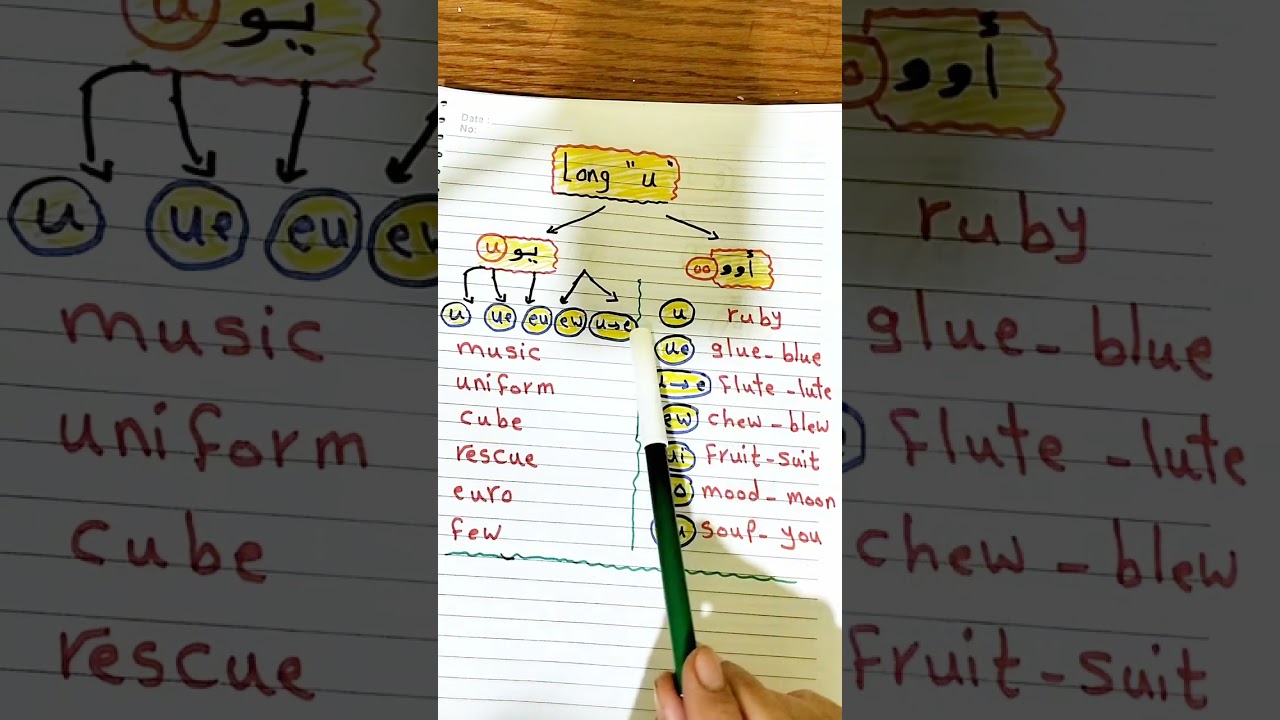 Date:
No:
Long "u"
u يو
oo أوو
u ue eu ew u→e
music
uniform
cube
rescue
euro
few
u ruby
ue glue-blue
→e flute-lute
ew chew-blew
ui fruit-suit
o mood-moon
u soup-you